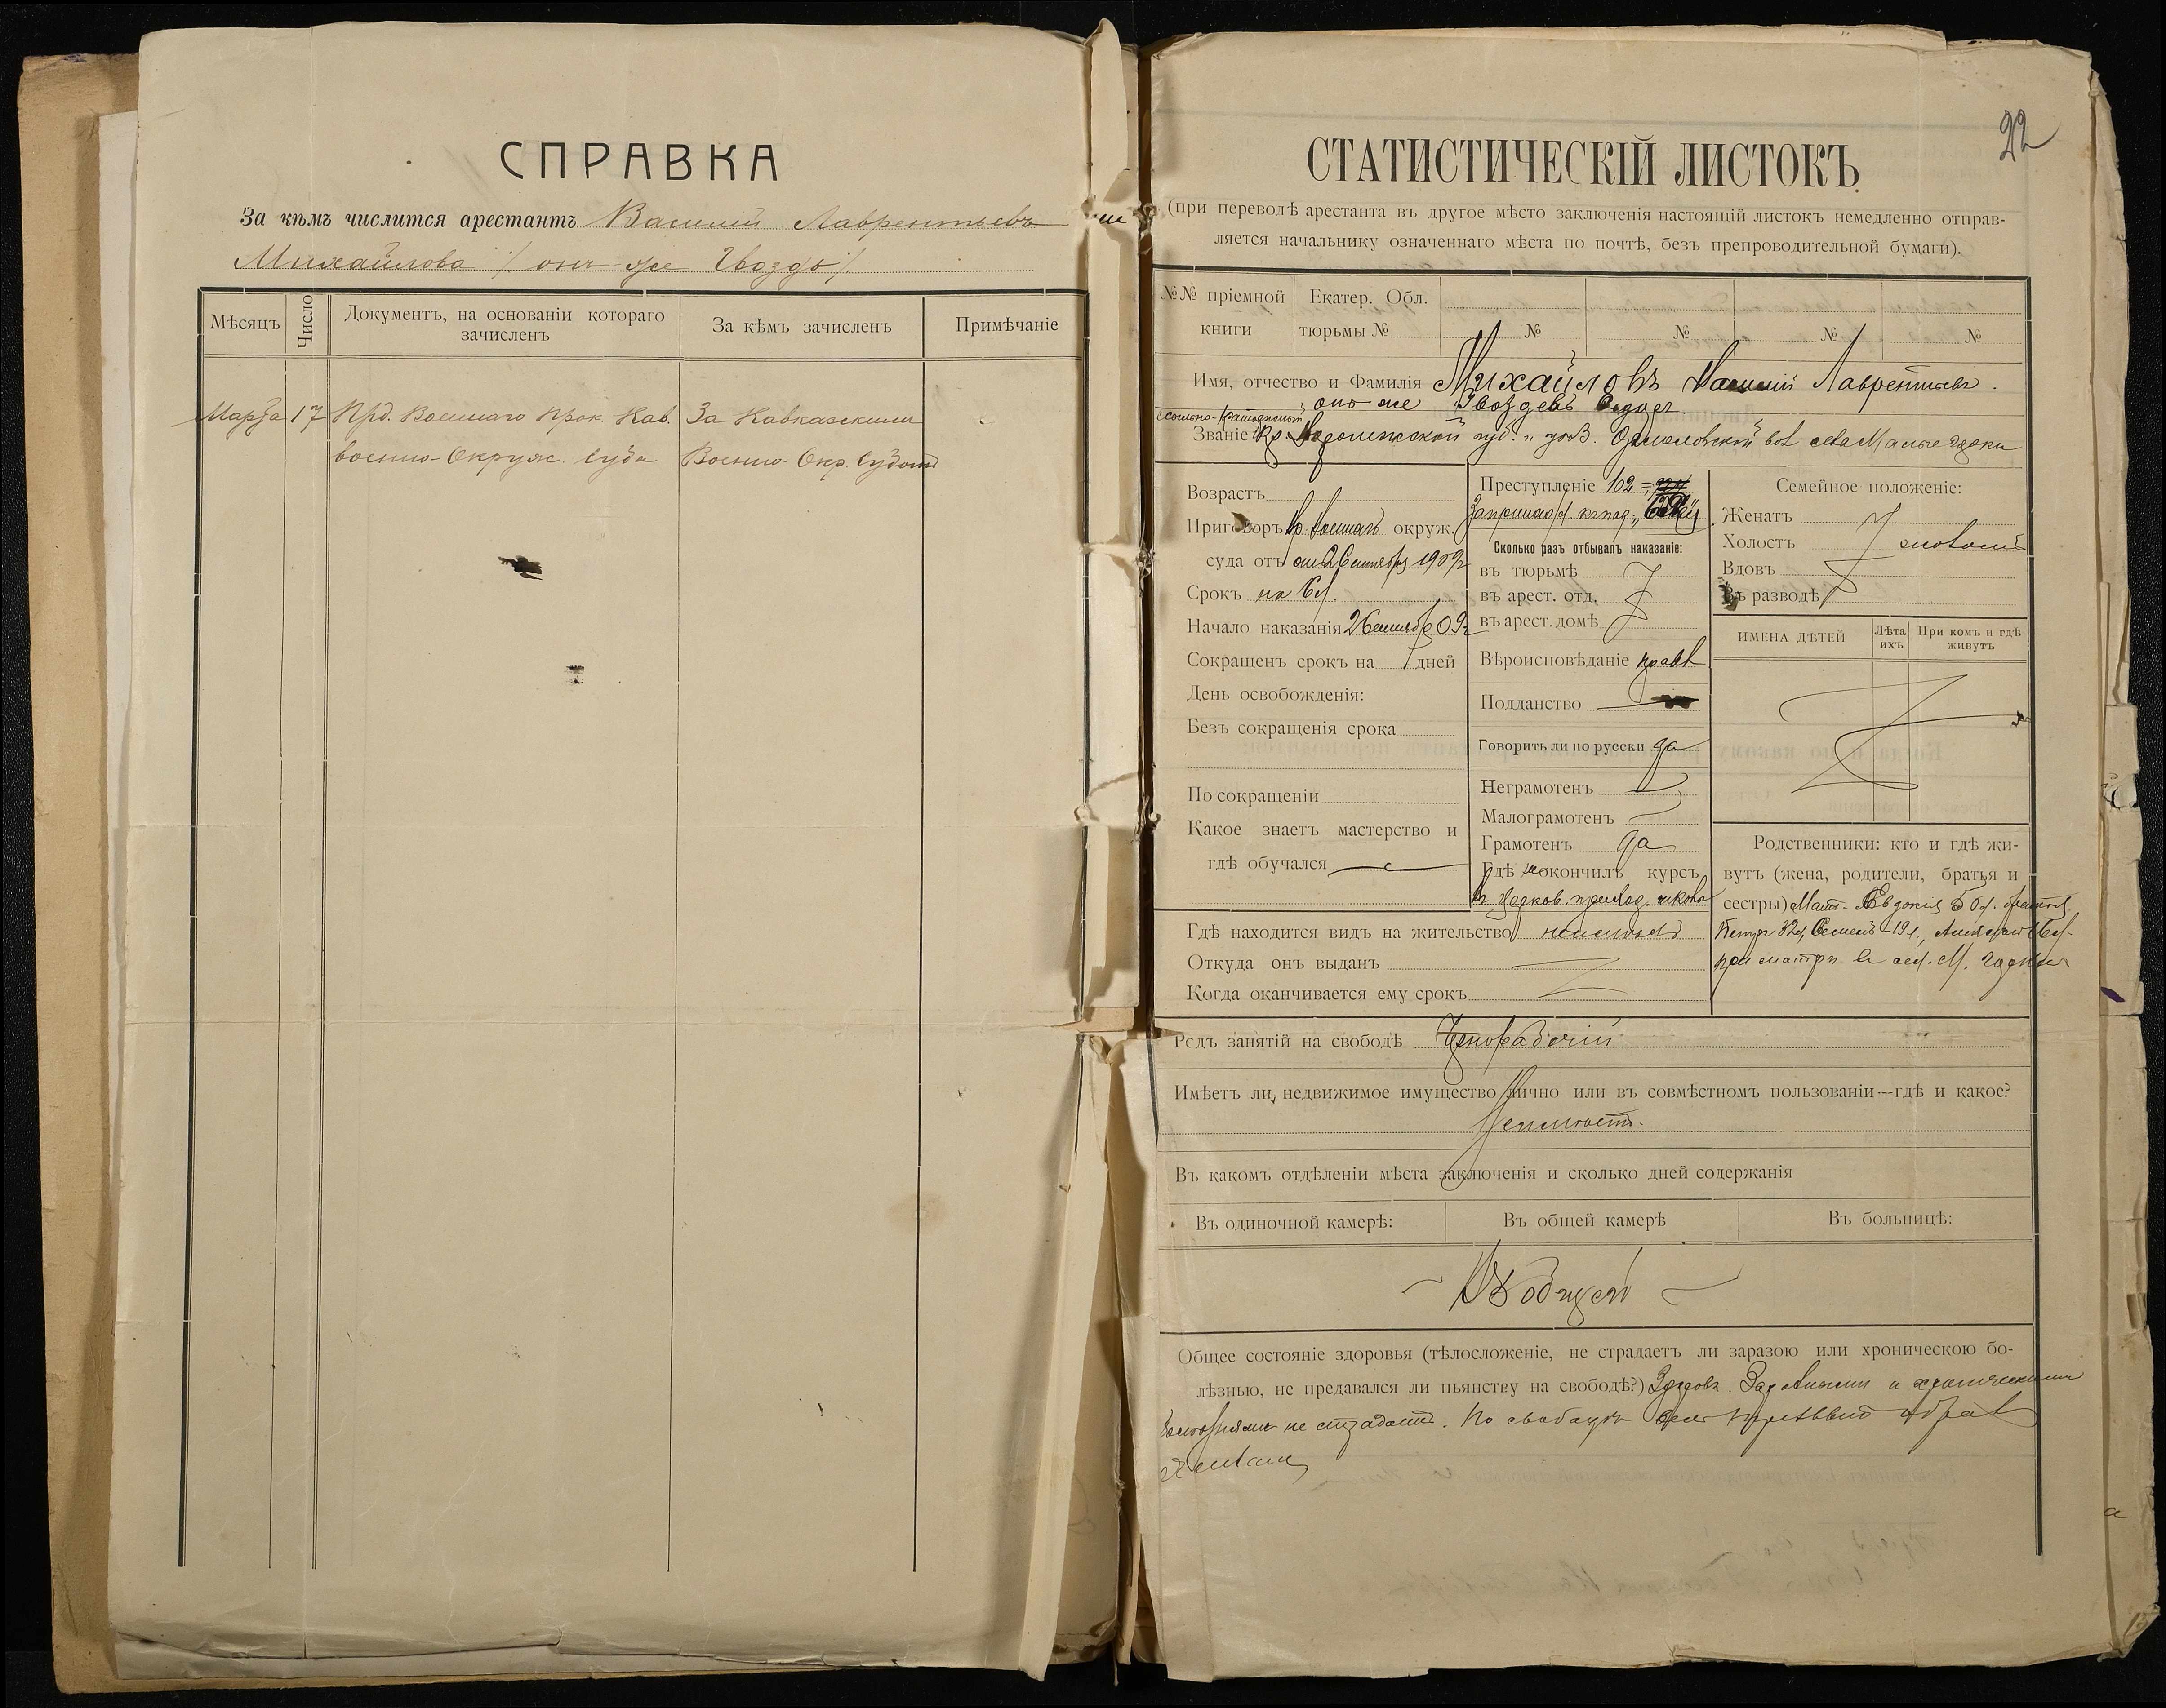 СПРАВКА
За кѣмъ числится арестантъ Василий Лаврентьевъ
Михайловъ /. онъ же Гвоздь /.
Мѣсяцъ
Число
Документъ, на основаніи котораго зачисленъ
За кѣмъ зачисленъ
Примѣчаніе
Марта 17 Прд. Военнаго Прок. Кав. За Кавказскимъ
военно-Окруж. Суда Военно-Окр. Судомъ
22
СТАТИСТИЧЕСКІЙ ЛИСТОКЪ
(при переводѣ арестанта въ другое мѣсто заключенія настоящій листокъ немедленно отправ-
ляется начальнику означеннаго мѣста по почтѣ, безъ препроводительной бумаги).
№№ пріемной книги
Екатер. Обл. тюрьмы №
№
№
№
№
Имя, отчество и Фамилія Михайловъ Василій Лаврентьевъ.
онъ же Гвоздевъ
ссыльно-каторжный
Званіе Кр. Воронежской губ. и уѣз. вол. села Малые
Возрастъ
Приговоръ Кв. Военнаго окруж.
суда отъ 26 сентября 1909г
Срокъ на 6 л.
Начало наказанія 26 сентяб 09г
Сокращенъ срокъ на дней
День освобожденія:
Безъ сокращенія срока
По сокращеніи
Какое знаетъ мастерство и
гдѣ обучался
Преступленіе 102
Сколько разъ отбывалъ наказаніе:
въ тюрьмѣ
въ арест. отд.
въ арест. домѣ
Вѣроисповѣданіе правл
Подданство
Говоритъ ли по русски да
Неграмотенъ
Малограмотенъ
Грамотенъ да
Гдѣ окончилъ курсъ
въ Церков. приход. школѣ
Семейное положеніе:
Женатъ
Холостъ холостъ
Вдовъ
Въ разводѣ
ИМЕНА ДѢТЕЙ
Лѣта ихъ
При комъ и гдѣ живутъ
Родственники: кто и гдѣ жи-
вутъ (жена, родители, братья и
сестры) Мать-Евдокія 50 л. братья
Петръ 32 л, Семенъ-19 л, 16 л-
при матери въ сел. М.
Гдѣ находится видъ на жительство неимѣетъ
Откуда онъ выданъ
Когда оканчивается ему срокъ
Родъ занятій на свободѣ Чернорабочій
Имѣетъ ли недвижимое имущество лично или въ совмѣстномъ пользованіи—гдѣ и какое?
Неимѣетъ.
Въ какомъ отдѣленіи мѣста заключенія и сколько дней содержанія
Въ одиночной камерѣ:
Въ общей камерѣ
Въ больницѣ:
Въ общей
Общее состояніе здоровья (тѣлосложеніе, не страдаетъ ли заразою или хроническою бо-
лѣзнью, не предавался ли пьянству на свободѣ?) Здоровъ. Заразными и хроническими
болѣзнями не страдаетъ. На свободѣ велъ трезвый образ
жизни